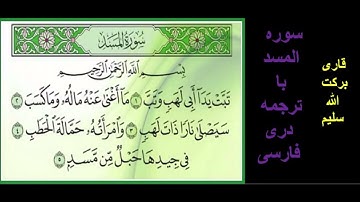 سُورَةُ المَسَد
بِسْمِ اللَّهِ الرَّحْمَٰنِ الرَّحِيمِ
تَبَّتْ يَدَا أَبِي لَهَبٍ وَتَبَّ ١ مَا أَغْنَىٰ عَنْهُ مَالُهُ وَمَا كَسَبَ ٢
سَيَصْلَىٰ نَارًا ذَاتَ لَهَبٍ ٣ وَامْرَأَتُهُ حَمَّالَةَ الْحَطَبِ ٤
فِي جِيدِهَا حَبْلٌ مِّن مَّسَدٍ ٥
سوره
المسد
با
ترجمه
دری
فارسی
قاری
برکت
الله
سلیم